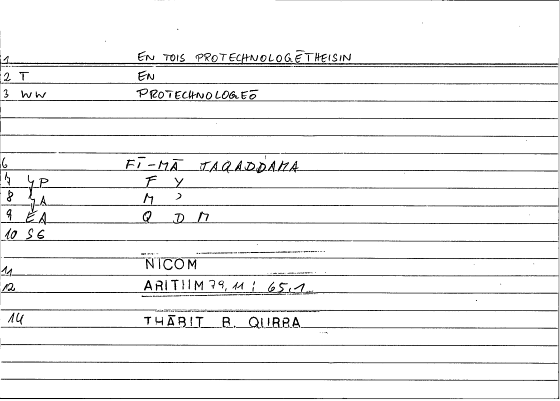 1 EN TOIS PROTECHNOLOGĒTHEISIN
2 T EN
3 WW PROTECHNOLOGEŌ
6 FĪ-MĀ TAQADDAMA
7 P F Y
8 A M ʾ
9 EA Q D M
10 SG
11 NICOM
12 ARITIIM 79,11 : 65,1
14 THĀBIT B. QURRA